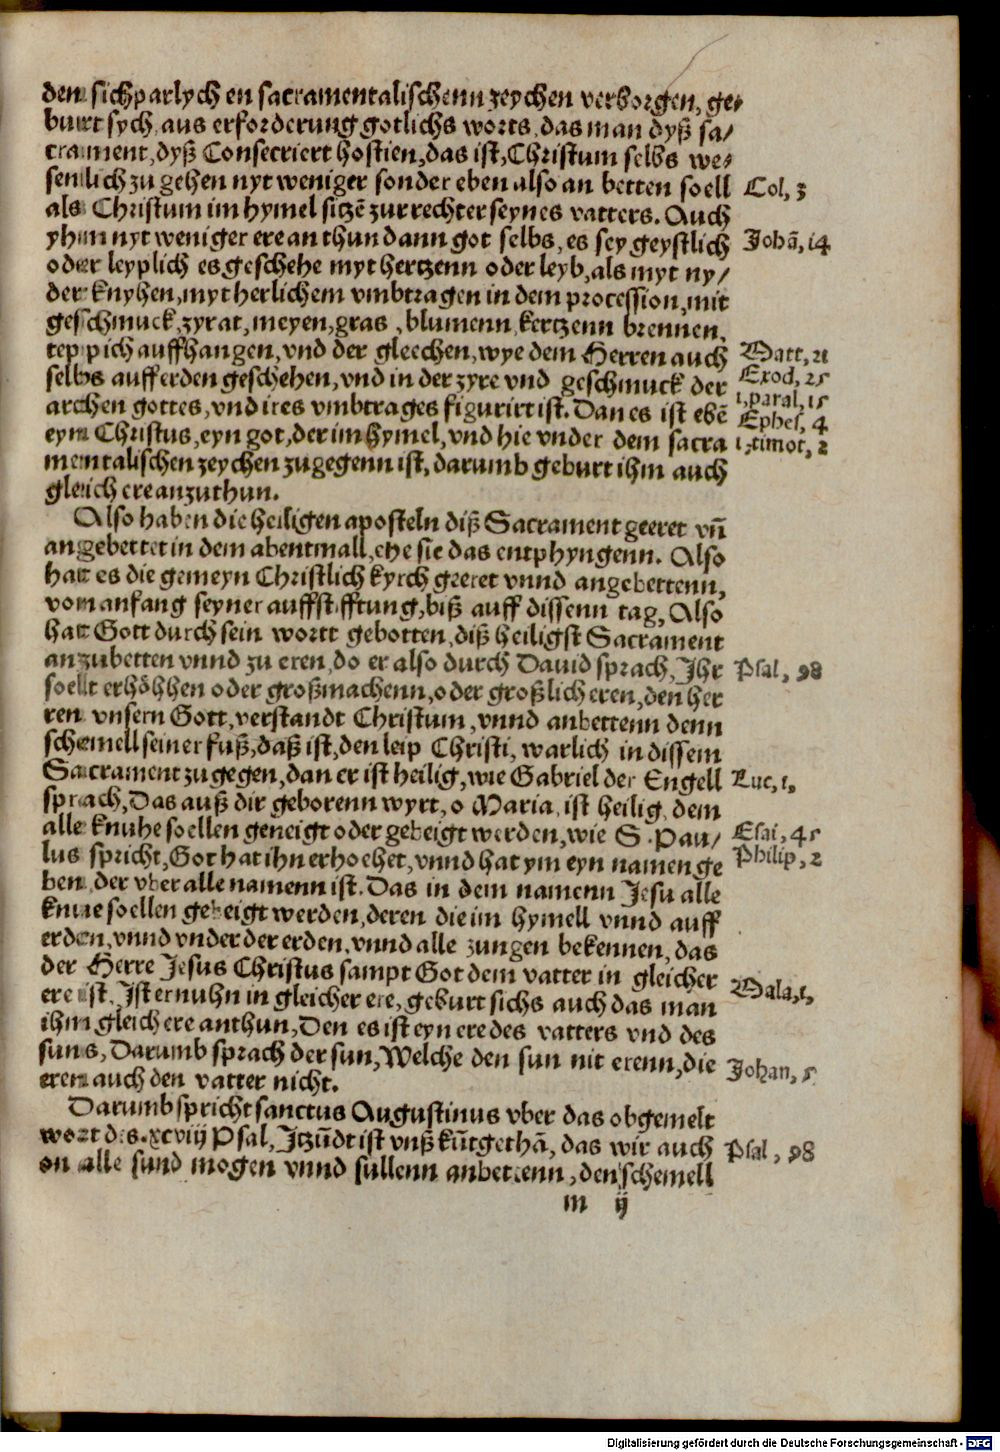 den sichparlychen sacramentalischenn zeychen verborgen, ge⸗
burt sych aus erforderung gotlichs worts, das man dyß sa/
crament, dyß Consecriert hostien, das ist, Christum selbs we⸗
senlich zu gehen nyt weniger sonder eben also an betten soell
Col, 3
als Christum im hymel sitzē zur rechter seynes vatters. Auch
yhm nyt weniger ere anthun dann got selbs, es sey geystlich
Johā, 14
oder leyplich es geschehe myt hertzenn oder leyb, als myt ny/
der knyhen, myt herlichem vmbtragen in dem procession, mit
geschmuck, zyrat, meyen, gras, blumenn kertzenn brennen,
teppich auffhangen, vnd der gleechen, wye dem Herren auch
Matt, 21
selbs auff erden geschehen, vnd in der zyre vnd geschmuck der
Exod, 25
archen gottes, vnd ires vmbtrages figurirt ist. Dan es ist ebē
1, paral, 15
Ephes, 4
eyn Christus, eyn got, der im hymel, vnd hie vnder dem sacra
1, timot, 2
mentalischen zeychen zugegenn ist, darumb geburt ihm auch
gleich ere anzuthun.
Also haben die heiligen aposteln diß Sacrament geeret vn̄
angebettet in dem abentmall, ehe sie das entphyngenn. Also
hatt es die gemeyn Christlich kyrch geeret vnnd angebettenn,
vom anfang seyner auffstifftung, biß auff dissenn tag, Also
hatt Gott durch sein wortt gebotten, diß heiligst Sacrament
anzubetten vnnd zu eren, do er also durch Dauid sprach, Ihr
Psal, 98
soellt erhöhhen oder großmachenn, oder großlich eren, den her
ren vnsern Gott, verstandt Christum, vnnd anbettenn denn
schemell seiner fuß, daß ist, den leip Christi, warlich in dissem
Sacrament zugegen, dan er ist heilig, wie Gabriel der Engell
Luc, 1,
sprach, Das auß dir geborenn wyrt, o Maria, ist heilig, dem
alle knuhe soellen geneigt oder gebeigt werden, wie S. Pau/
Esai, 45
lus spricht, Got hat ihn erhoehet, vnnd hat ym eyn namen ge
Philip, 2
ben, der vber alle namenn ist. Das in dem namenn Jesu alle
knuie soellen gebeigt werden, deren die im hymell vnnd auff
erden, vnnd vnder der erden, vnnd alle zungen bekennen, das
der Herre Jesus Christus sampt Got dem vatter in gleicher
ere ist. Ist er nuhn in gleicher ere, geburt sichs auch das man
Mala, 1,
ihm gleich ere anthun, Den es ist eyn ere des vatters vnd des
suns, Darumb sprach der sun, Welche den sun nit erenn, die
Johan, 5
eren auch den vatter nicht.
Darumb spricht sanctus Augustinus vber das obgemelt
wort des .xcviij Psal, Itzūdt ist vnß kūtgethā, das wir auch
Psal, 98
on alle sund mogen vnnd sullenn anbettenn, den schemell
m ij
Digitalisierung gefördert durch die Deutsche Forschungsgemeinschaft - DFG